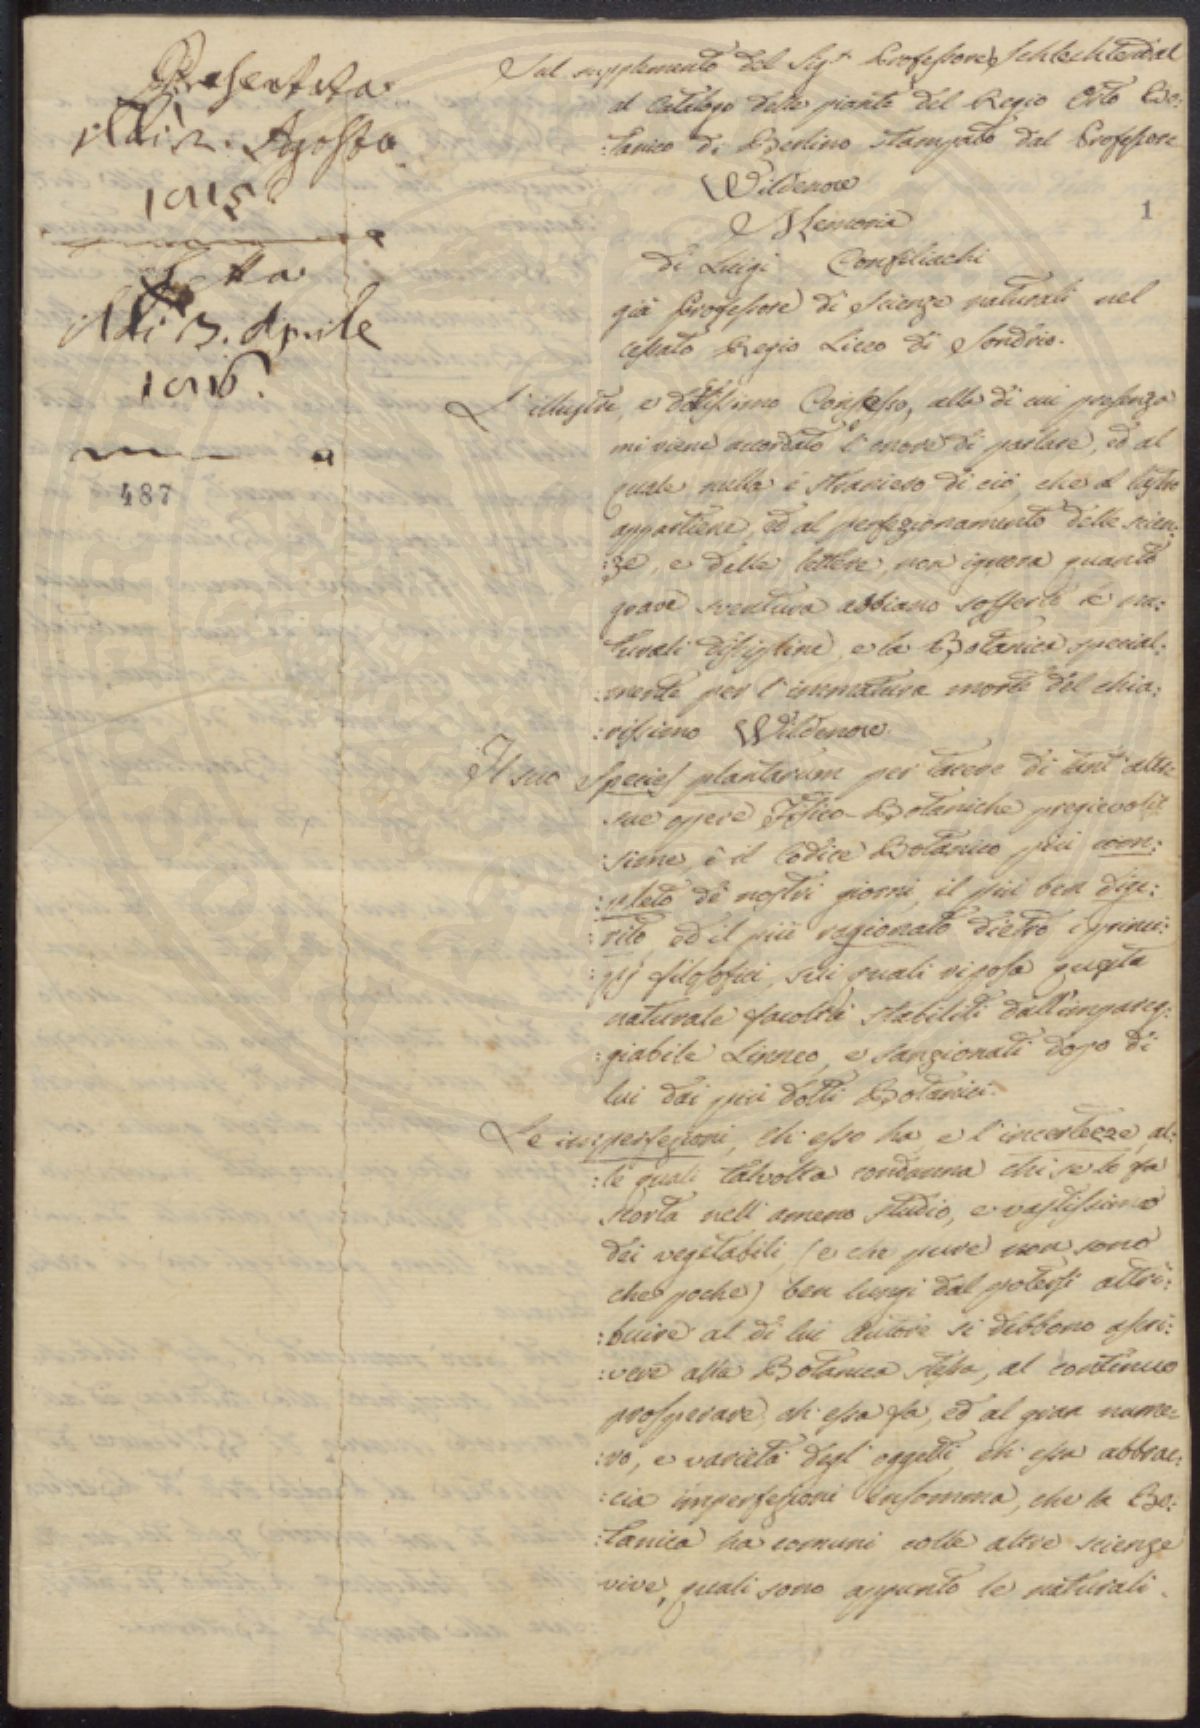 Presentata
Adi 12. Agosto
1815.
Letta
Adi 3. Aprile
1816.
487
1
Sul supplemento del Sig.r Professore Schlechtendal
al Catalogo delle piante del Regio Orto Bo:
:tanico di Berlino stampato dal Professore
Wildenow
Memoria
di Luigi Configliachi
già Professore di Scienze naturali nel
cessato Regio Liceo di Sondrio.
L'illustre, e dottissimo Consesso, alla di cui presenza
mi viene accordato l'onore di parlare, ed al
quale nulla è straniero di ciò, che al lustro
appartiene, ed al perfezionamento delle scien:
:ze, e delle lettere, non ignora quanto
grave sventura abbiano sofferto le na:
:turali discipline, e la Botanica special:
:mente per l'immatura morte del chia:
:rissimo Wildenow.
Il suo Species plantarum per tacere di tant'altre
sue opere Fisico-Botaniche pregievolis:
:sime, è il Codice Botanico più com:
:pleto de' nostri giorni, il più ben dige:
:rito, ed il più ragionato dietro i princi:
:pj filosofici, sui quali riposa questa
naturale facoltà stabiliti dall'impareg:
:giabile Linneo, e sanzionati dopo di
lui dai più dotti Botanici.
Le imperfezioni, ch'esso ha, e l'incertezze, al:
:le quali talvolta condanna chi se lo fa
scorta nell'ameno studio, e vastissimo
dei vegetabili, (e che pure non sono
che poche) ben lungi dal potersi attri:
:buire al di lui Autore si debbono ascri:
:vere alla Botanica stessa, al continuo
prosperare, ch'essa fa, ed al gran nume:
:ro, e varietà degl'oggetti, ch'essa abbrac:
:cia imperfezioni insomma, che la Bo:
:tanica ha comuni colle altre scienze
vive, quali sono appunto le naturali.